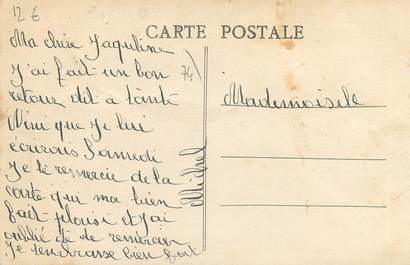 12 €
CARTE POSTALE
Ma chère Jaqueline
J'ai fait un bon
retour dit a tante
Nini que Je lui
écrirons Samedi
Je te remercie de la
carte qui ma bien
fait plaisi et J'ai
oublié de te remercier
Je t'embrasse bien fort
Michel
74
Mademoiselle